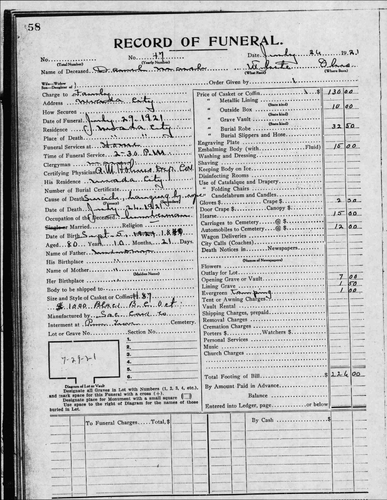 58
RECORD OF FUNERAL.
No.
(Total Number)
No. 47
(Yearly Number)
Date, July 26 1921
Name of Deceased
White
(What Race)
Ohio
(Where Born)
Wife - Widow
Son - Daughter of
Order Given by
Charge to Family
Address Nevada City
How Secured
Date of Funeral July 29, 1921
Residence Nevada City
Place of Death
Funeral Services at Home
Time of Funeral Service 2:30 P.M.
Clergyman
Certifying Physician
His Residence Nevada City
Number of Burial Certificate
Cause of Death Suicide hanging by rope
Date of Death July 26, 1921
Occupation of the Deceased
Single or Married Religion
Date of Birth Sept. 5
Aged 80 Years 10 Months 21 Days
Name of Father
His Birthplace
Name of Mother
(Maiden Name)
Her Birthplace
Body to be shipped to
Size and Style of Casket or Coffin
Manufactured by
Interment at Cemetery
Lot or Grave No. Section No.
1.
2.
3.
4.
5.
6.
7-29-21
Diagram of Lot or Vault
Designate all Graves in Lot with Numbers (1, 2, 3, 4, etc.), and mark space for this Funeral with a cross (+).
Designate place for Monument with a small square
Use space to the right of Diagram for the names of those buried in Lot.
Price of Casket or Coffin $ 130 00
" Metallic Lining
(State kind)
" Outside Box 10 00
(State kind)
" Grave Vault
(State kind)
" Burial Robe 32 50
(State kind)
" Burial Slippers and Hose
Engraving Plate
Embalming Body (with Fluid) 15 00
Washing and Dressing
Shaving
Keeping Body on Ice
Disinfecting Rooms
Use of Catafalque and Drapery
" Folding Chairs
" Candelabrum
Gloves $ Crape $ 2 00
Door Crape $ Canopy $
Hearse 15 00
Carriages to Cemetery @ $
Automobiles to Cemetery @ $ 12 00
Wagon Deliveries
City Calls (Coaches)
Death Notices in Newspapers
(Names of Newspapers)
Flowers
Outlay for Lot
Opening Grave or Vault 7 00
Lining Grave 1 50
Evergreen 1 00
Tent or Awning Charges
Vault Rental
Shipping Charges, prepaid
Removal Charges
Cremation Charges
Porters $ Watchers $
Personal Services
Music
Church Charges
Total Footing of Bill $ 226 00
By Amount Paid in Advance
Balance
Entered into Ledger, page or below.
To Funeral Charges Total, $
By Cash $